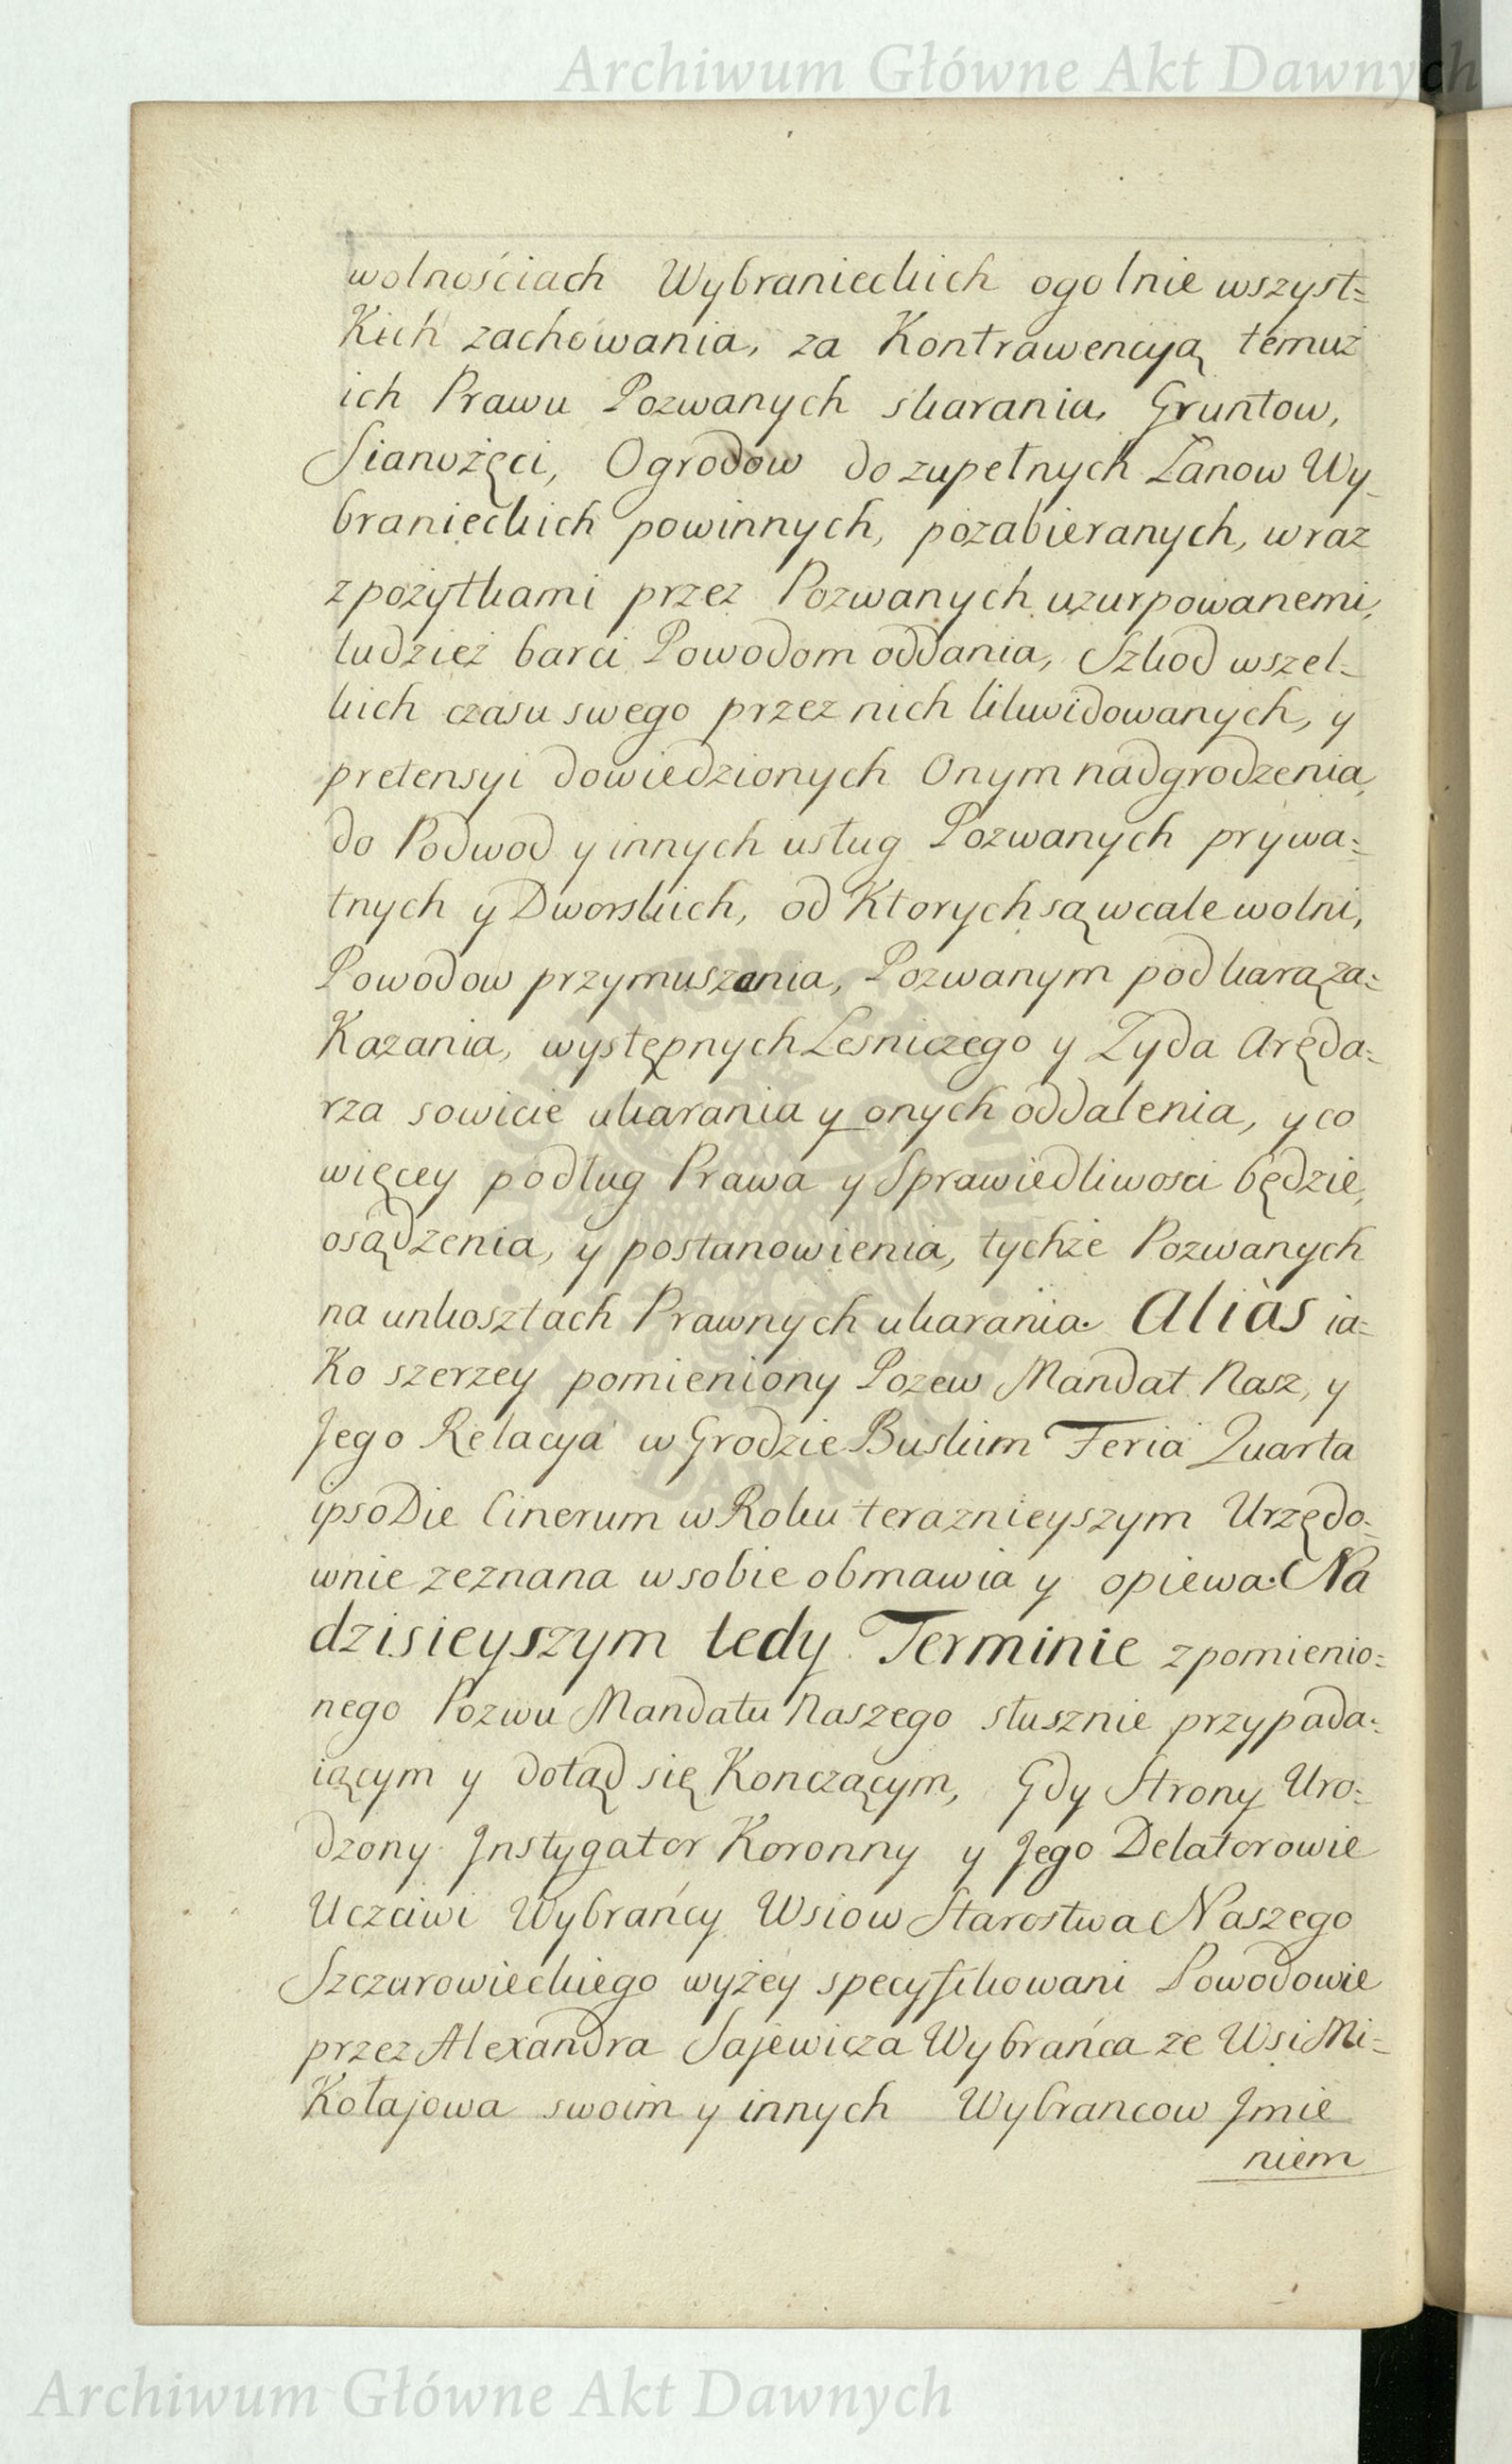 Archiwum Główne Akt Dawnych
wolnościach Wybranieckich ogolnie wszyst=
Kich zachowania, za Kontrawencyą temuż
ich Prawu Pozwanych skarania, Gruntow,
Sianożęci, Ogrodow do zupełnych Łanow Wy-
branieckich powinnych, pozabieranych, wraz
z pożytkami przez Pozwanych uzurpowanemi,
tudzież barci Powodom oddania, Szkod wszel-
kich czasu swego przez nich likwidowanych, y
pretensyi dowiedzionych Onym nadgrodzenia,
do Podwod y innych usług Pozwanych prywa=
tnych y Dworskich, od Ktorych są wcale wolni,
Powodow przymuszania, Pozwanym pod karą za=
Kazania, występnych Lesniczego y Zyda Aręda=
rza sowicie ukarania y onych oddalenia, y co
więcey podług Prawa y Sprawiedliwosci będzie,
osądzenia, y postanowienia, tychże Pozwanych
na unkosztach Prawnych ukarania. Alias ia=
Ko szerzey pomieniony Pozew Mandat Nasz, y
Jego Relacya w Grodzie Buskim Feria Quarta
ipso Die Cinerum w Roku teraznieyszym Urzędo=
wnie zeznana w sobie obmawia y opiewa. Na
dzisieyszym tedy Terminie z pomienio=
nego Pozwu Mandatu Naszego słusznie przypada=
iącym y dotąd się Konczącym, Gdy Strony Uro=
dzony Jnstygator Koronny y Jego Delatorowie
Uczciwi Wybrańcy Wsiow Starostwa Naszego
Szczurowieckiego wyżey specyfikowani Powodowie
przez Alexandra Sajewicza Wybrańca ze Wsi Mi=
Kołajowa swoim y innych Wybrancow Jmie
niem
Archiwum Główne Akt Dawnych